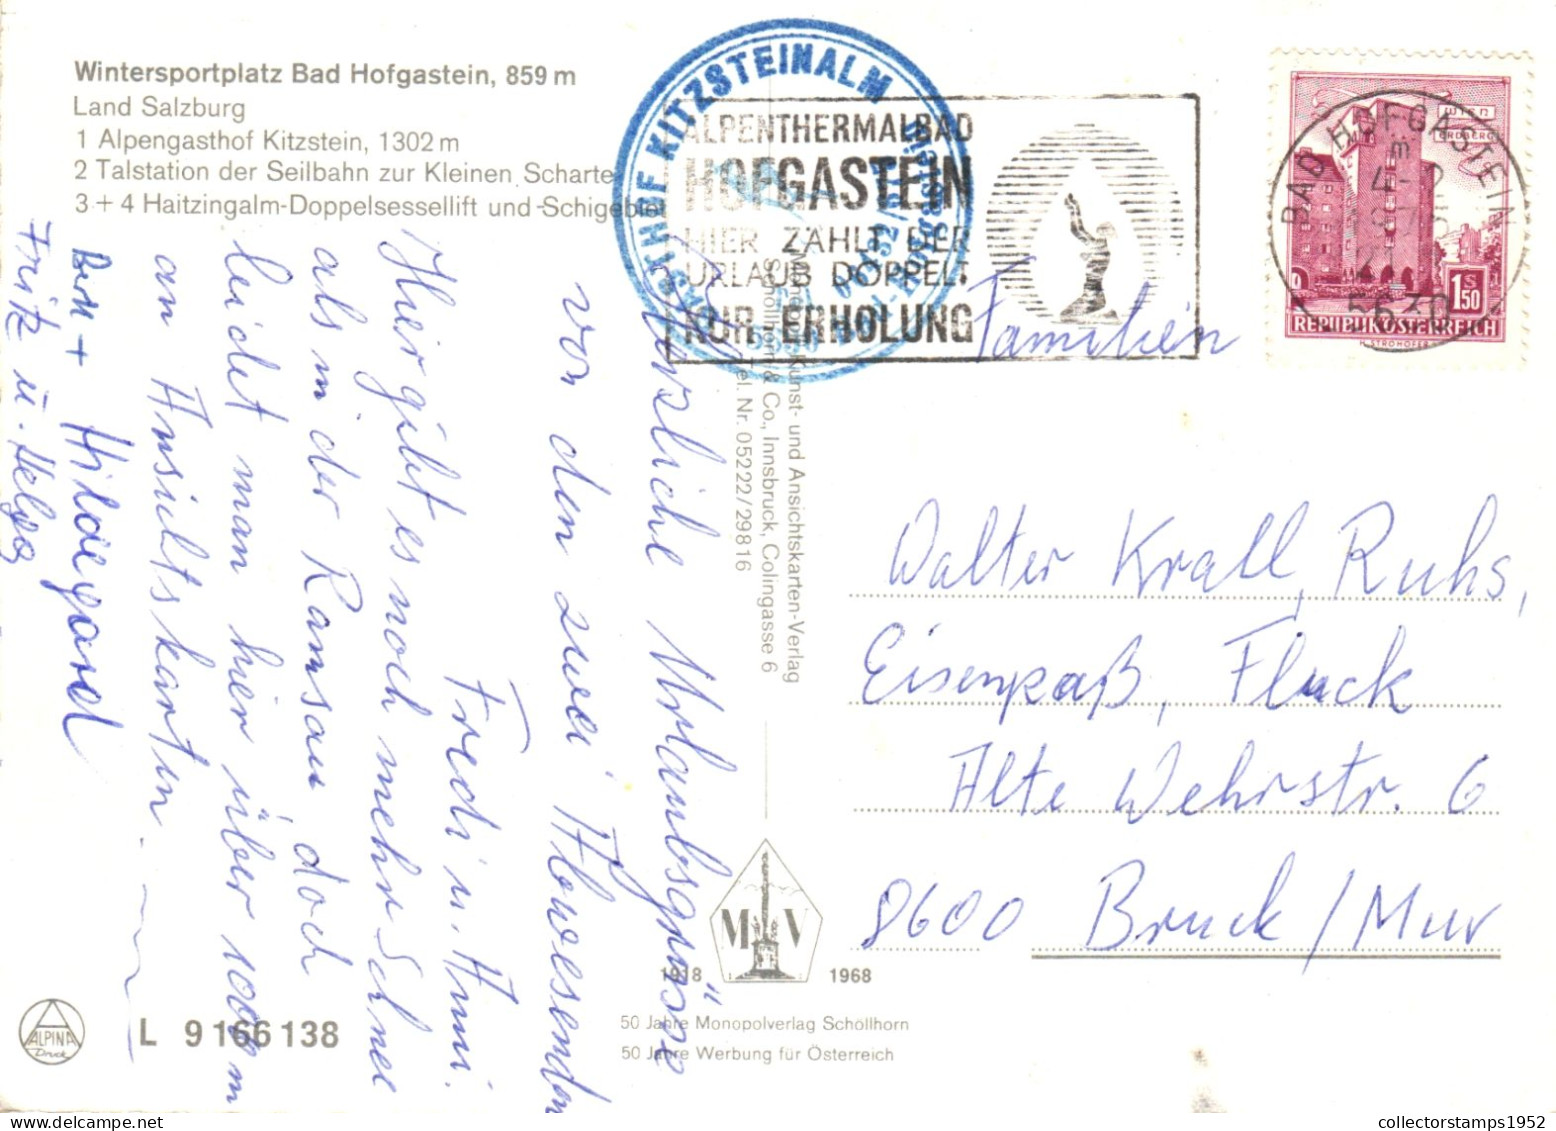 Wintersportplatz Bad Hofgastein, 859 m
Land Salzburg
1 Alpengasthof Kitzstein, 1302 m
2 Talstation der Seilbahn zur Kleinen Scharte
3 + 4 Haitzingalm-Doppelsessellift und Schigebiet
KITZSTEINALM
ALPENTHERMALBAD
HOFGASTEIN
HIER ZÄHLT DER
URLAUB DOPPELT
KUR-ERHOLUNG
BAD HOFGASTEIN
5630
WIEN
ERDBERG
S
1.50
REPUBLIK ÖSTERREICH
Herzliche Urlaubsgrüsse
von den zwei Abwesenden
Fredi u. Anni.
Hier gibt es noch mehr Schnee
als in der Ramsau doch
leidet man hier über 1000 m
an Ansichtskarten.
+ Hildegard
Fritz u. Helga
Kunst- und Ansichtskarten-Verlag
& Co., Innsbruck, Colingasse 6
Tel. Nr. 05222/29816
Familien
Walter Krall, Ruhs,
Eisenpaß, Fluck
Alte Wehrstr. 6
8600 Bruck / Mur
M V
1918 1968
50 Jahre Monopolverlag Schöllhorn
50 Jahre Werbung für Österreich
ALPINA
Druck
L 9 166 138
collectorstamps1952